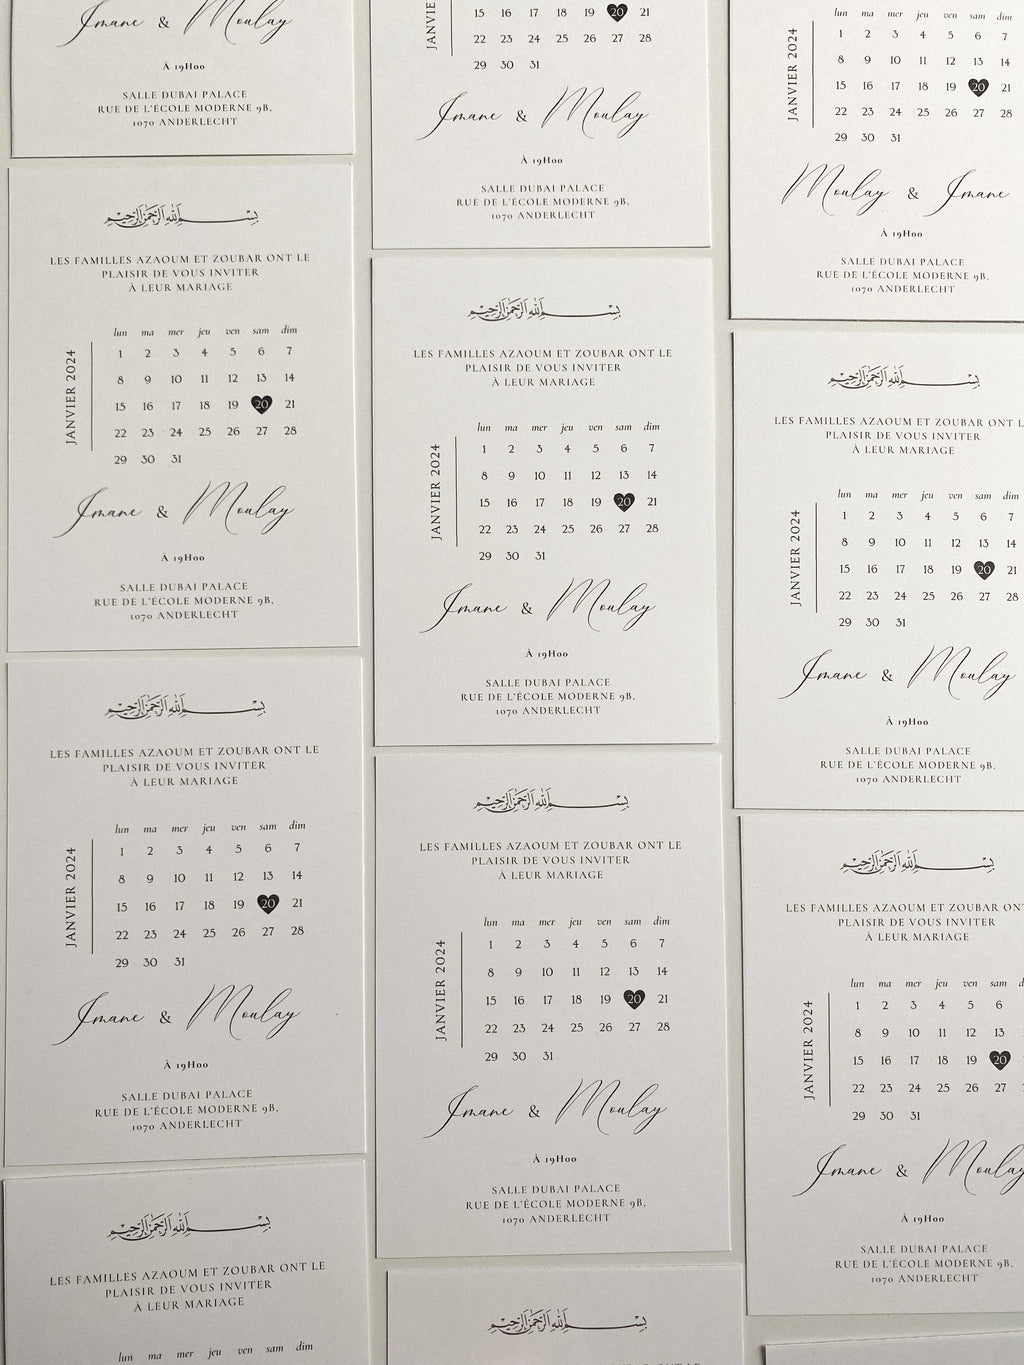 Imane & Moulay
À 19H00
SALLE DUBAI PALACE
RUE DE L'ÉCOLE MODERNE 9B,
1070 ANDERLECHT
بسم الله الرحمن الرحيم
LES FAMILLES AZAOUM ET ZOUBAR ONT LE
PLAISIR DE VOUS INVITER
À LEUR MARIAGE
JANVIER 2024
lun ma mer jeu ven sam dim
1 2 3 4 5 6 7
8 9 10 11 12 13 14
15 16 17 18 19 20 21
22 23 24 25 26 27 28
29 30 31
Imane & Moulay
À 19H00
SALLE DUBAI PALACE
RUE DE L'ÉCOLE MODERNE 9B,
1070 ANDERLECHT
بسم الله الرحمن الرحيم
LES FAMILLES AZAOUM ET ZOUBAR ONT LE
PLAISIR DE VOUS INVITER
À LEUR MARIAGE
JANVIER 2024
lun ma mer jeu ven sam dim
1 2 3 4 5 6 7
8 9 10 11 12 13 14
15 16 17 18 19 20 21
22 23 24 25 26 27 28
29 30 31
Imane & Moulay
À 19H00
SALLE DUBAI PALACE
RUE DE L'ÉCOLE MODERNE 9B,
1070 ANDERLECHT
بسم الله الرحمن الرحيم
LES FAMILLES AZAOUM ET ZOUBAR ONT LE
PLAISIR DE VOUS INVITER
À LEUR MARIAGE
lun ma mer jeu ven sam dim
JANVIER
15 16 17 18 19 20 21
22 23 24 25 26 27 28
29 30 31
Imane & Moulay
À 19H00
SALLE DUBAI PALACE
RUE DE L'ÉCOLE MODERNE 9B,
1070 ANDERLECHT
بسم الله الرحمن الرحيم
LES FAMILLES AZAOUM ET ZOUBAR ONT LE
PLAISIR DE VOUS INVITER
À LEUR MARIAGE
JANVIER 2024
lun ma mer jeu ven sam dim
1 2 3 4 5 6 7
8 9 10 11 12 13 14
15 16 17 18 19 20 21
22 23 24 25 26 27 28
29 30 31
Imane & Moulay
À 19H00
SALLE DUBAI PALACE
RUE DE L'ÉCOLE MODERNE 9B,
1070 ANDERLECHT
بسم الله الرحمن الرحيم
LES FAMILLES AZAOUM ET ZOUBAR ONT LE
PLAISIR DE VOUS INVITER
À LEUR MARIAGE
JANVIER 2024
lun ma mer jeu ven sam dim
1 2 3 4 5 6 7
8 9 10 11 12 13 14
15 16 17 18 19 20 21
22 23 24 25 26 27 28
29 30 31
Imane & Moulay
À 19H00
SALLE DUBAI PALACE
RUE DE L'ÉCOLE MODERNE 9B,
1070 ANDERLECHT
بسم الله الرحمن الرحيم
JANVIER 2024
lun ma mer jeu ven sam dim
1 2 3 4 5 6 7
8 9 10 11 12 13 14
15 16 17 18 19 20 21
22 23 24 25 26 27 28
29 30 31
Moulay & Imane
À 19H00
SALLE DUBAI PALACE
RUE DE L'ÉCOLE MODERNE 9B,
1070 ANDERLECHT
بسم الله الرحمن الرحيم
LES FAMILLES AZAOUM ET ZOUBAR ONT L
PLAISIR DE VOUS INVITER
À LEUR MARIAGE
JANVIER 2024
lun ma mer jeu ven sam dim
1 2 3 4 5 6 7
8 9 10 11 12 13 14
15 16 17 18 19 20 21
22 23 24 25 26 27 28
29 30 31
Imane & Moulay
À 19H00
SALLE DUBAI PALACE
RUE DE L'ÉCOLE MODERNE 9B,
1070 ANDERLECHT
بسم الله الرحمن الرحيم
LES FAMILLES AZAOUM ET ZOUBAR ONT
PLAISIR DE VOUS INVITER
À LEUR MARIAGE
JANVIER 2024
lun ma mer jeu ven sam d
1 2 3 4 5 6
8 9 10 11 12 13
15 16 17 18 19 20
22 23 24 25 26 27
29 30 31
Imane & Moulay
À 19H00
SALLE DUBAI PALACE
RUE DE L'ÉCOLE MODERNE 9B,
1070 ANDERLECHT